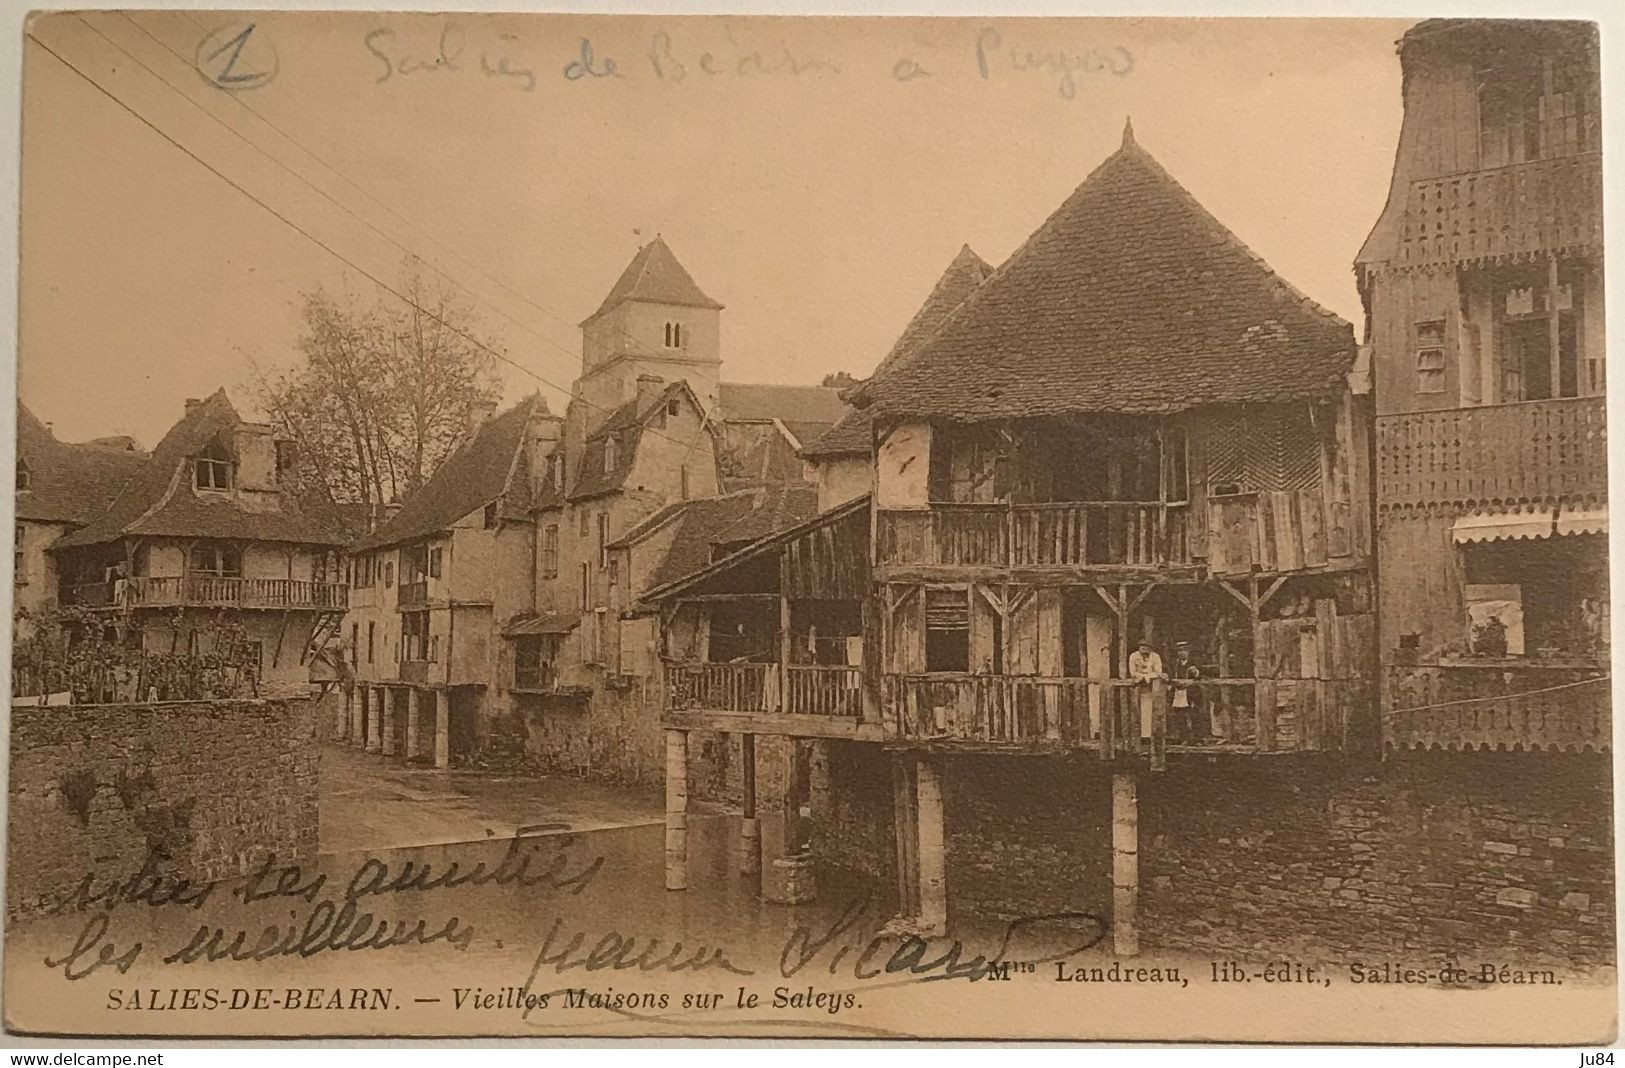 1 Saliès de Béarn à Puyoo
ses amitiés
les meilleures. Jeanne Sicard
Mlle Landreau, lib.-édit., Salies-de-Béarn.
SALIES-DE-BEARN. — Vieilles Maisons sur le Saleys.
www.delcampe.net
Ju84